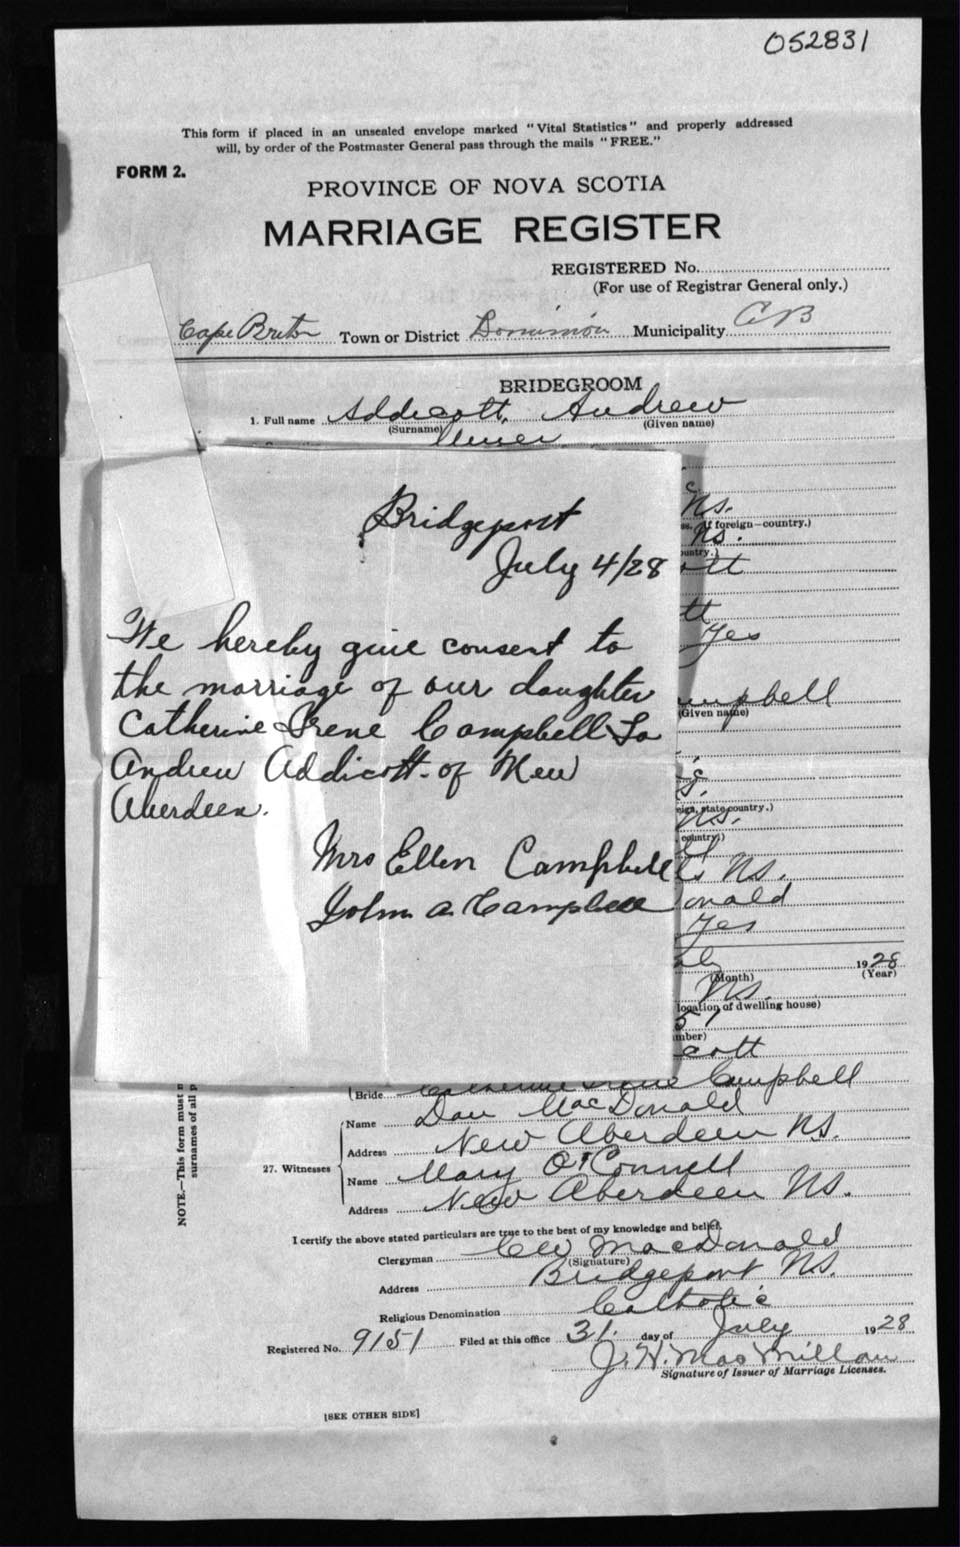 052831
This form if placed in an unsealed envelope marked "Vital Statistics" and properly addressed
will, by order of the Postmaster General pass through the mails "FREE."
FORM 2.
PROVINCE OF NOVA SCOTIA
MARRIAGE REGISTER
REGISTERED No.
(For use of Registrar General only.)
County Cape Breton Town or District Dominion Municipality CB
BRIDEGROOM
1. Full name Addicott, Andrew
(Surname) (Given name)
Miner
Bridgeport
July 4/28
We hereby give consent to
the marriage of our daughter
Catherine Irene Campbell To
Andrew Addicott of New
Aberdeen.
Mrs Ellen Campbell
John A Campbell
c
Ns.
if foreign—country.)
Ns.
ountry.)
ott
tt
Yes
ampbell
(Given name)
s.
eign, state country.)
Ns.
country.)
Ns.
onald
Yes
uly 1928
(Month) (Year)
Ns.
location of dwelling house)
51
mber)
cott
Bride Catherine Irene Campbell
NOTE.—This form must
surnames of all
27. Witnesses
Name Dan MacDonald
Address New Aberdeen Ns.
Name Mary O'Connell
Address New Aberdeen Ns.
I certify the above stated particulars are true to the best of my knowledge and belief.
Clergyman CW MacDonald
(Signature)
Address Bridgeport Ns.
Religious Denomination Catholic
Registered No. 9151 Filed at this office 31. day of July 1928
J. H. MacMillan
Signature of Issuer of Marriage Licenses.
[SEE OTHER SIDE]